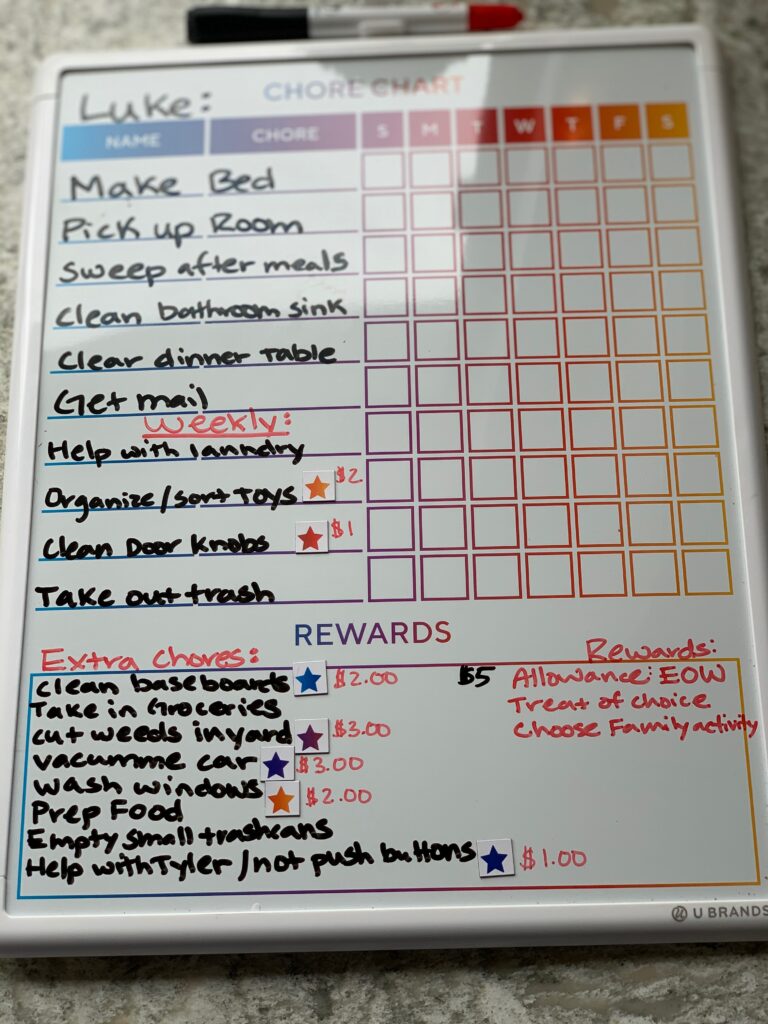 CHORE CHART
Luke:
NAME CHORE S M T W T F S
Make Bed
Pick up Room
Sweep after meals
Clean bathroom sink
Clear dinner Table
Get mail
Weekly:
Help with laundry
Organize/sort Toys $2
Clean Door Knobs $1
Take out trash
REWARDS
Extra Chores:
Clean baseboards $2.00
Take in Groceries
cut weeds in yard $3.00
vacumme car $3.00
wash windows $2.00
Prep Food
Empty small trashcans
Help with Tyler/not push buttons $1.00
Rewards:
$5 Allowance: EOW
Treat of choice
Choose Family activity
U BRANDS